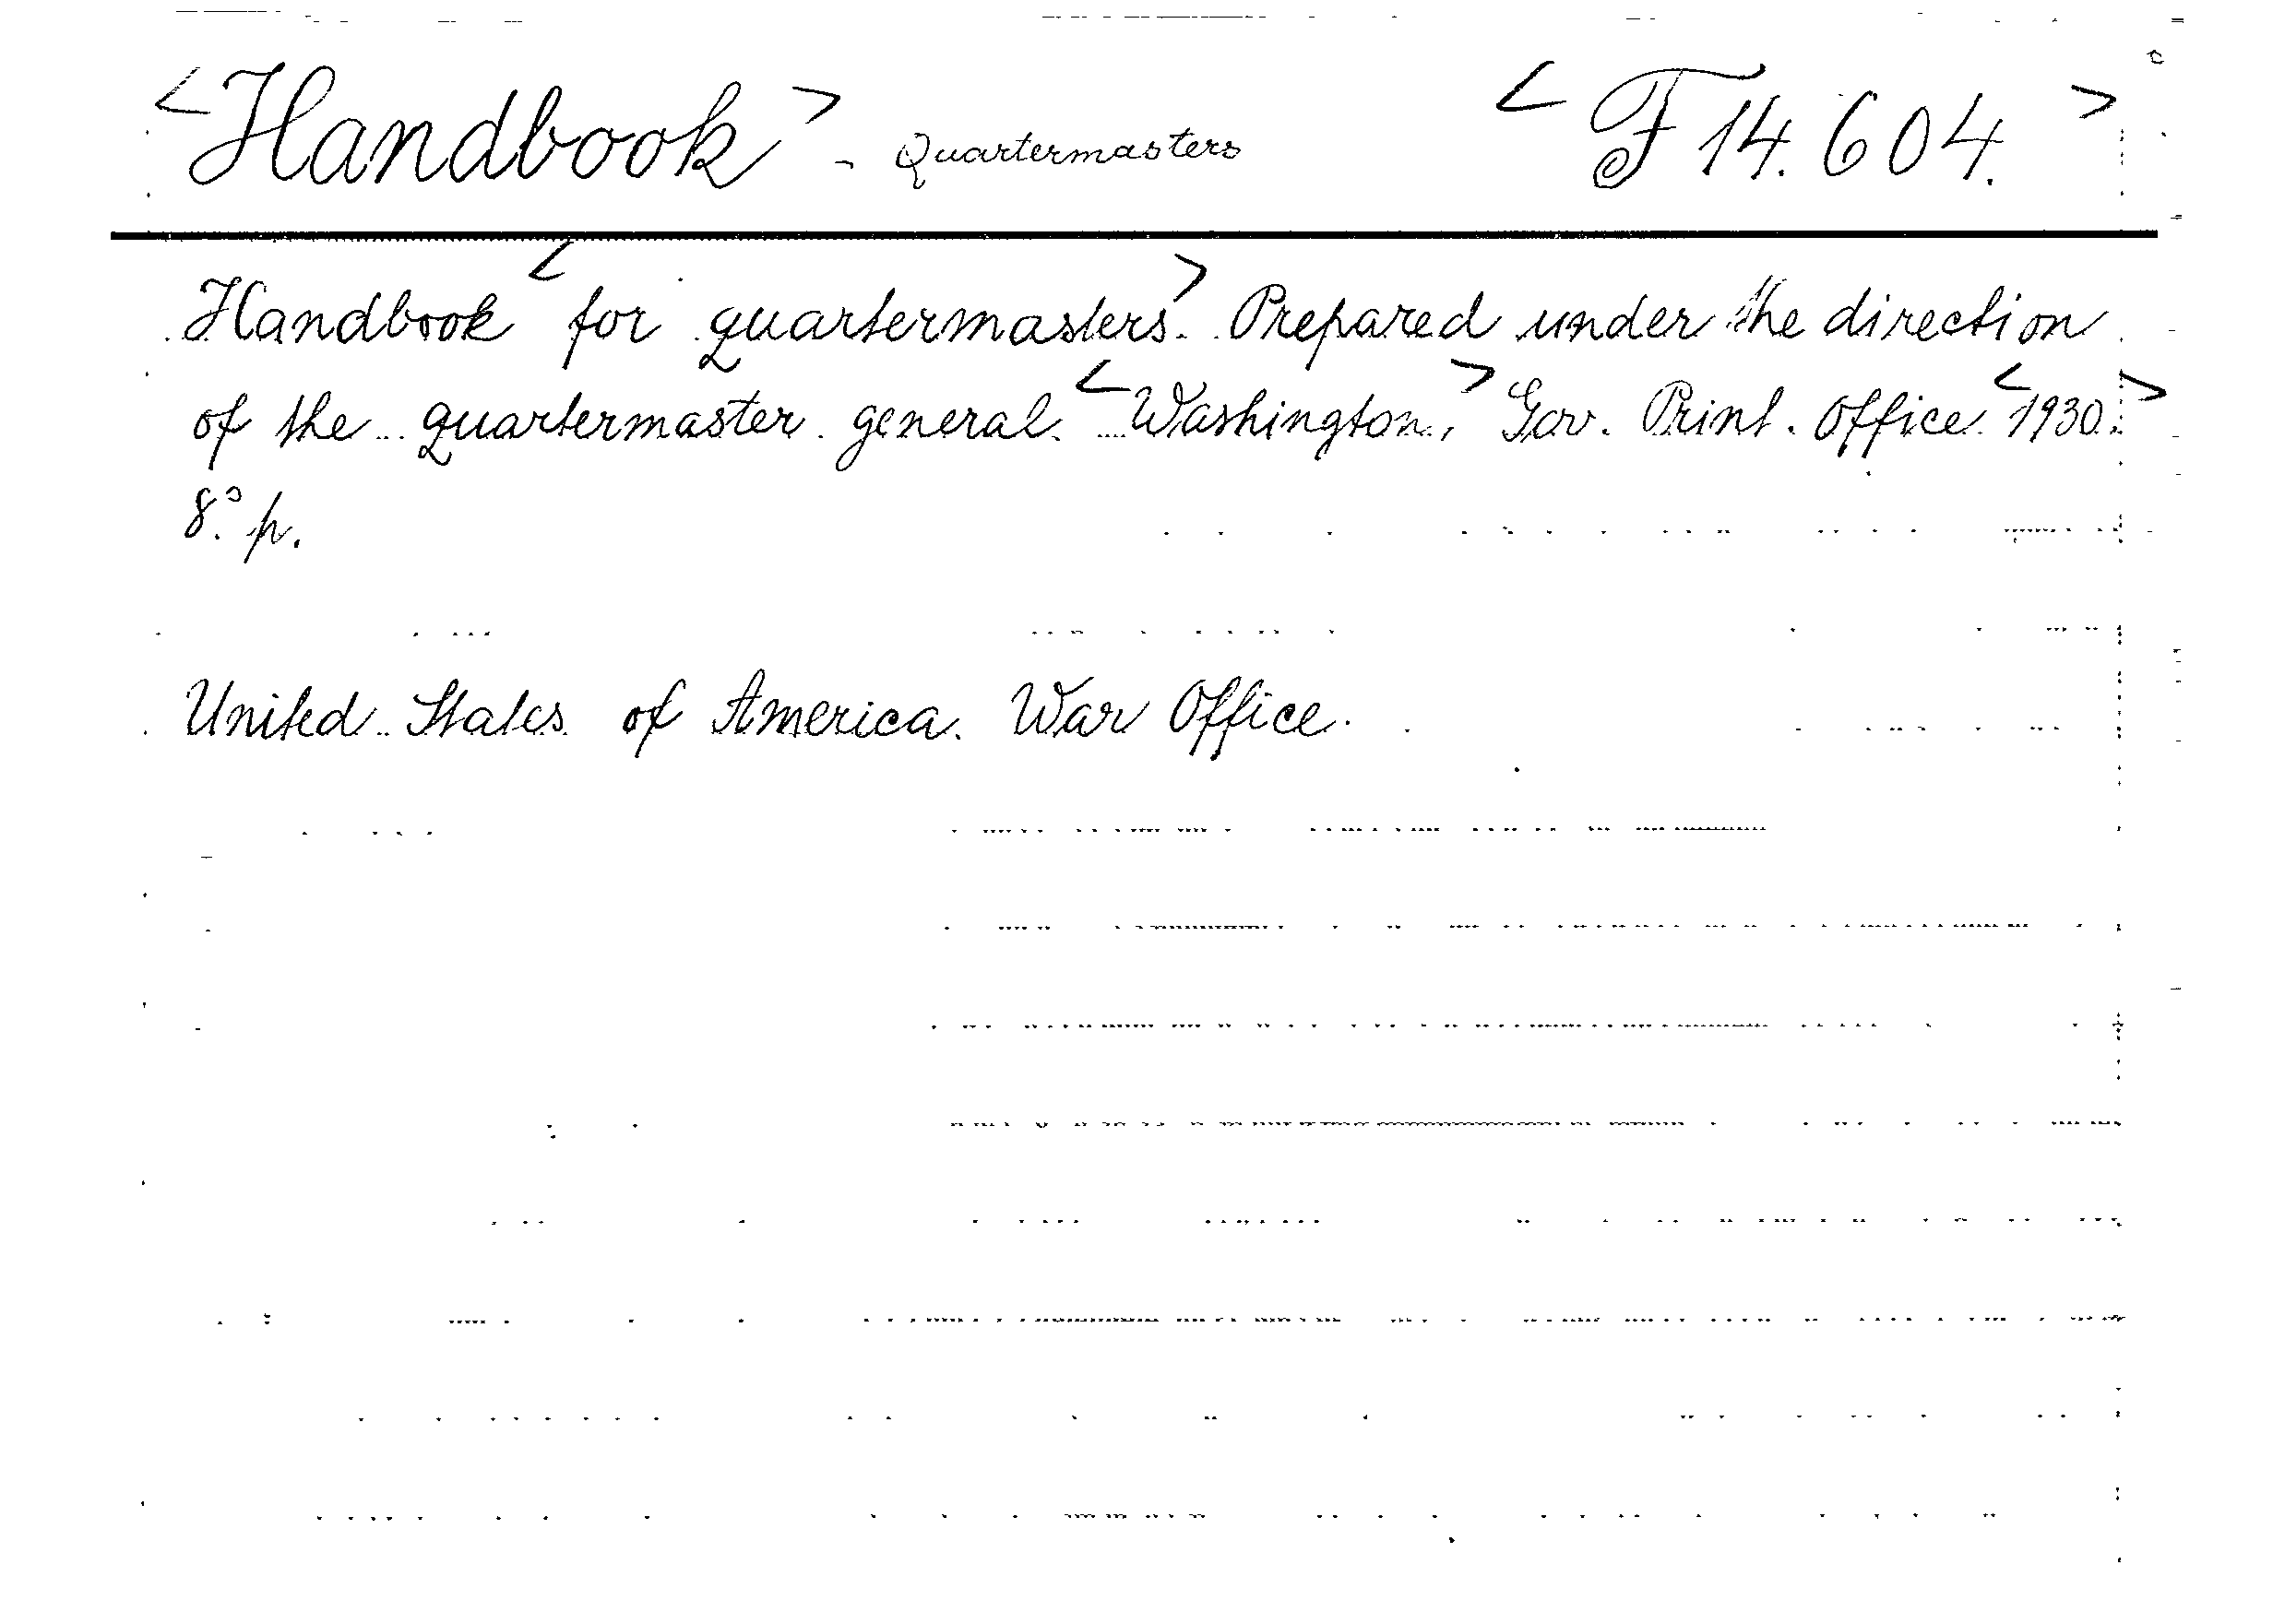 <Handbook> - Quartermasters <F 14.604.>
Handbook <for quartermasters.> Prepared under the direction
of the quartermaster general. <Washington,> Gov. Print. Office <1930.>
8° p.
United States of America. War Office.